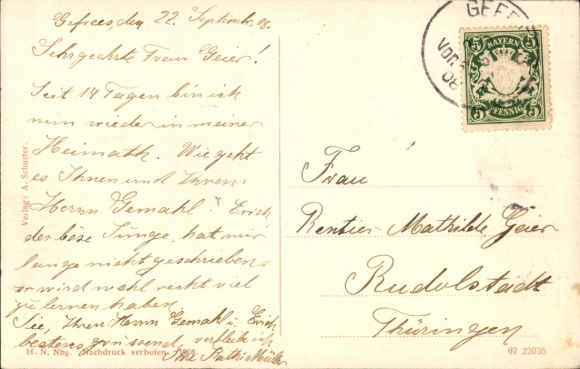 Gefrees, den 22. Septemb. 08.
Sehrgeehrte Frau Geier!
Seit 14 Tagen bin ich
nun wieder in meiner
Heimath. Wie geht
es Ihnen und Ihrem
Herrn Gemahl? Erich
der böse Junge, hat mir
lange nicht geschrieben,
er wird wohl recht viel
zu lernen haben.
Sie, Ihren Herrn Gemahl u. Erich
bestens grüssend, verbleibe ich
Ihre Müller
Verlag: A. Schuster.
H. N. Nbg. Nachdruck verboten. 1908.
GEFR
VOR
08
5 BAYERN 5
5 PFENNIG 5
Frau
Rentier Mathilde Geier
Rudolstadt
Thüringen
07 22036